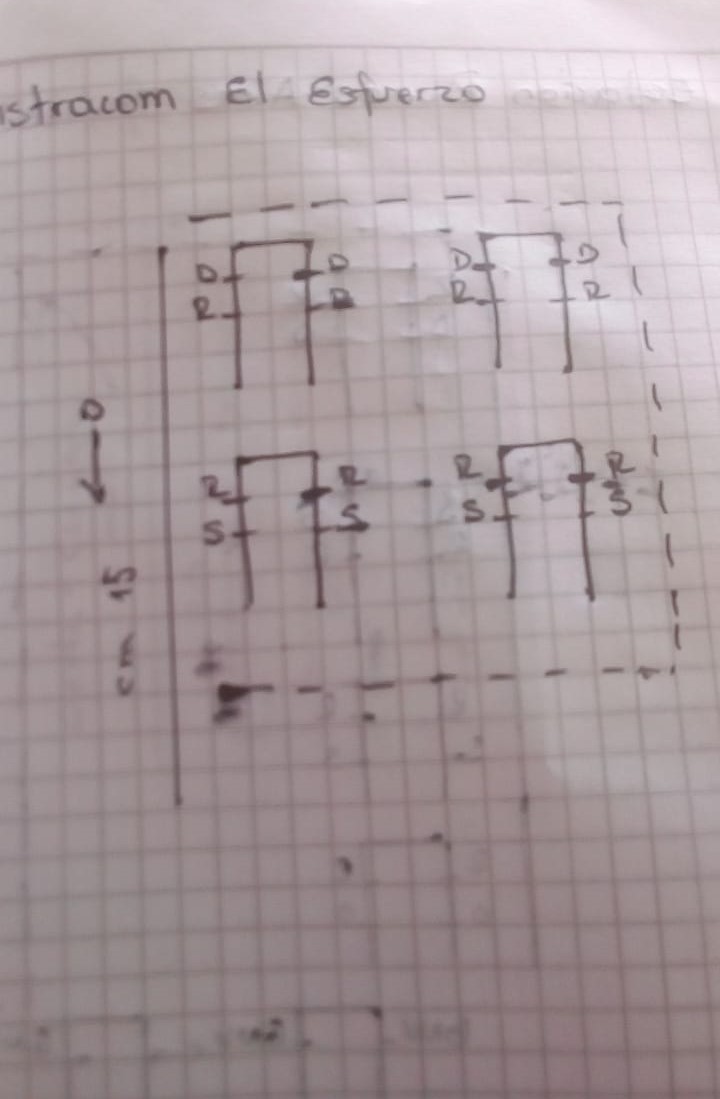 istracom El Esfuerzo
D D D D
R R R R
0
R R R R
S S S S
cm 15